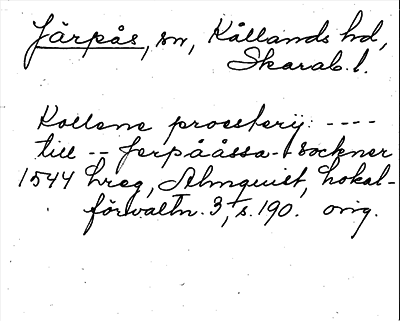 Järpås, sn, Kållands hd,
Skarab. l.
Kollene proesterij: ----
till -- Jerpååssa sockner
1544 hreg, Almquist, Lokal-
förvaltn. 3, s. 190. orig.